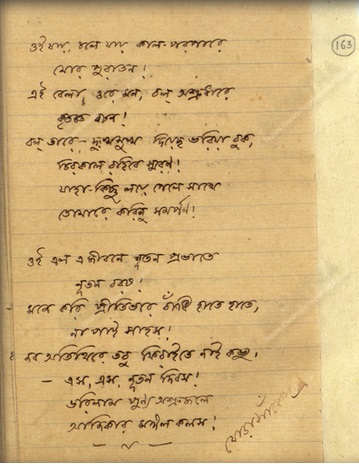 ওই যায়, চলে যায় কাল-পরপারে
মোর পুরাতন!
এই বেলা, ওরে মন, বল্ অশ্রুধারে
কৃতজ্ঞ বচন!
বল্ তারে - দুঃখসুখ দিয়েছ ভরিয়া বুক,
চিরকাল রহিবে স্মরণ!
যাহা-কিছু লয়ে গেলে সাথে
তোমারে করিনু সমর্পণ!
ওই এল এ জীবনে নূতন প্রভাতে
নূতন বরষ!
মনে করি প্রীতিভরে বাঁধি হাতে হাতে,
না পাই সাহস!
নব অতিথিরে তবু ফিরাইতে নাই কভু,
- এস, এস, নূতন দিবস!
ভরিলাম পুণ্য অশ্রুজলে
আজিকার মঙ্গল কলস!
163